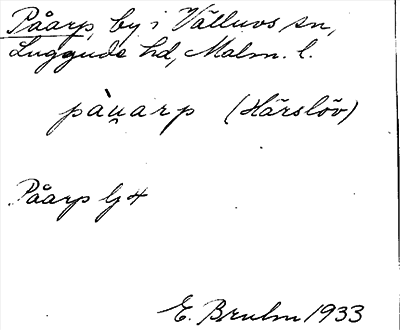 Påarp, by i Välluvs sn,
Luggude hd, Malm. l.
pàu̯arp (Härslöv)
Påarp lj 4
E. Bruhn 1933